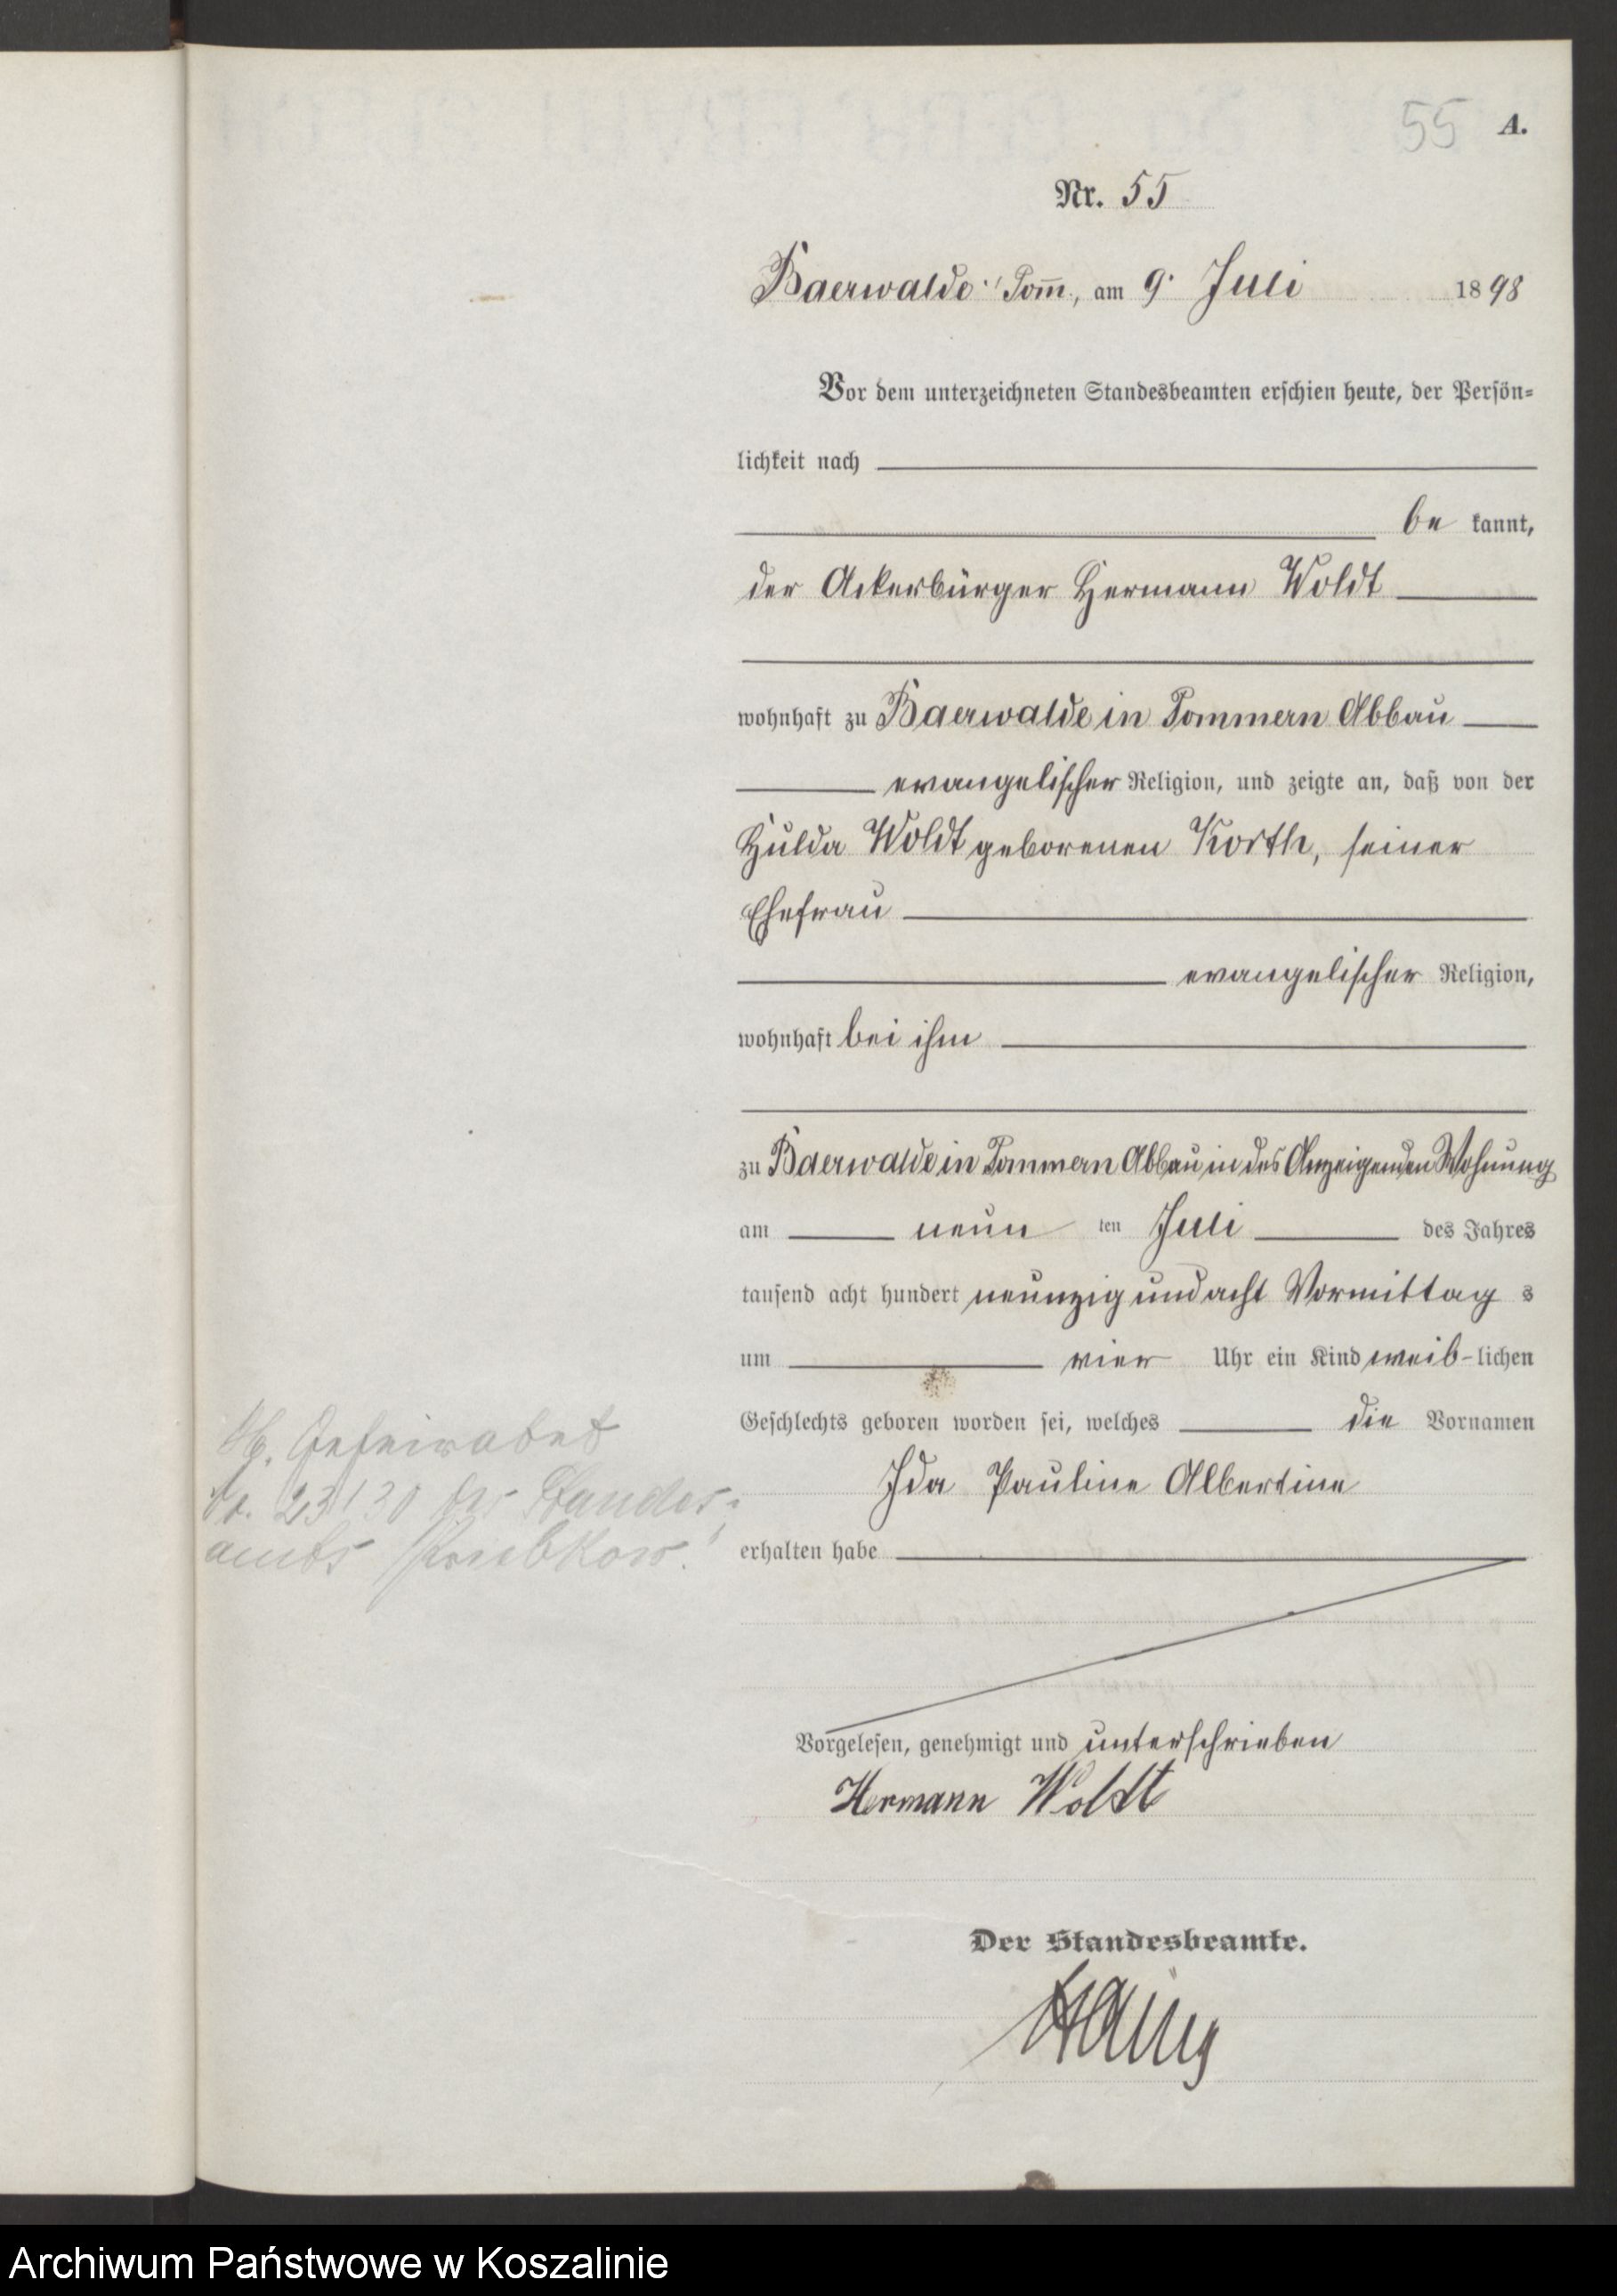 55 A.
Nr. 55
Baerwalde i/ Pom̅., am 9. Juli 1898
Vor dem unterzeichneten Standesbeamten erschien heute, der Persön-
lichkeit nach
be kannt,
der Ackerbürger Hermann Woldt
wohnhaft zu Baerwalde in Pommern Abbau
evangelischer Religion, und zeigte an, daß von der
Hulda Woldt geborenen Korth, seiner
Ehefrau
evangelischer Religion,
wohnhaft bei ihm
zu Baerwalde in Pommern Abbau in des Anzeigenden Wohnung
am neun ten Juli des Jahres
tausend acht hundert neunzig und acht Vormittag s
um vier Uhr ein Kind weib-lichen
Geschlechts geboren worden sei, welches die Vornamen
Ida Pauline Albertine
erhalten habe
Geheiratet
23/30 des Standes-
amts Priebkow.
Vorgelesen, genehmigt und unterschrieben
Hermann Woldt
Der Standesbeamte.
Archiwum Państwowe w Koszalinie